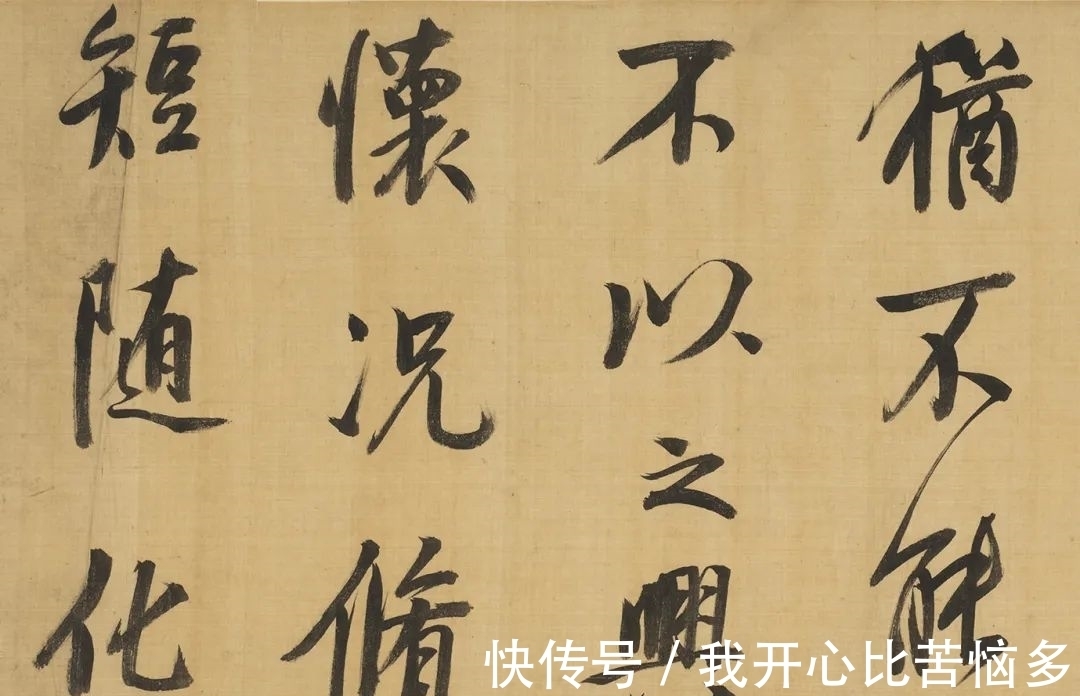 猶不能
不以之興
懷况脩
短随化
快传号 / 我开心比苦恼多